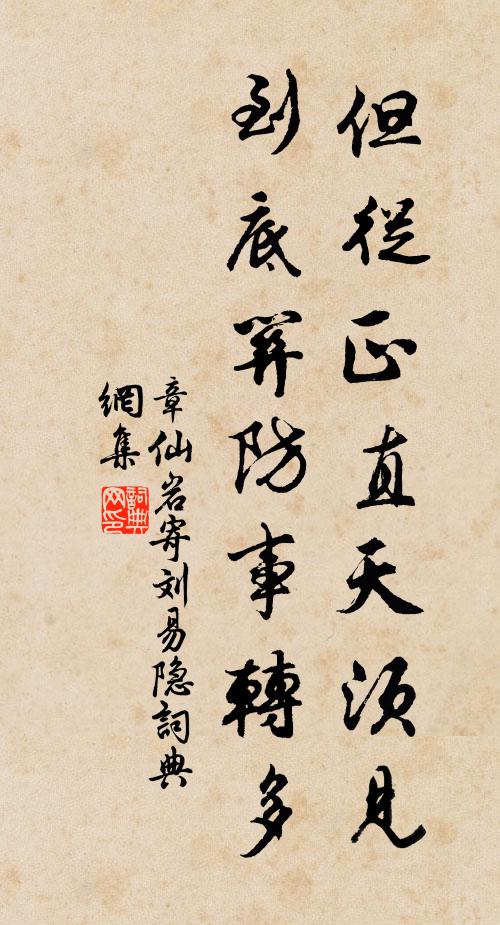 但從正直天須見
到底關防事轉多
章仙岩寄刘易隐詞典
網集
詞典
网印